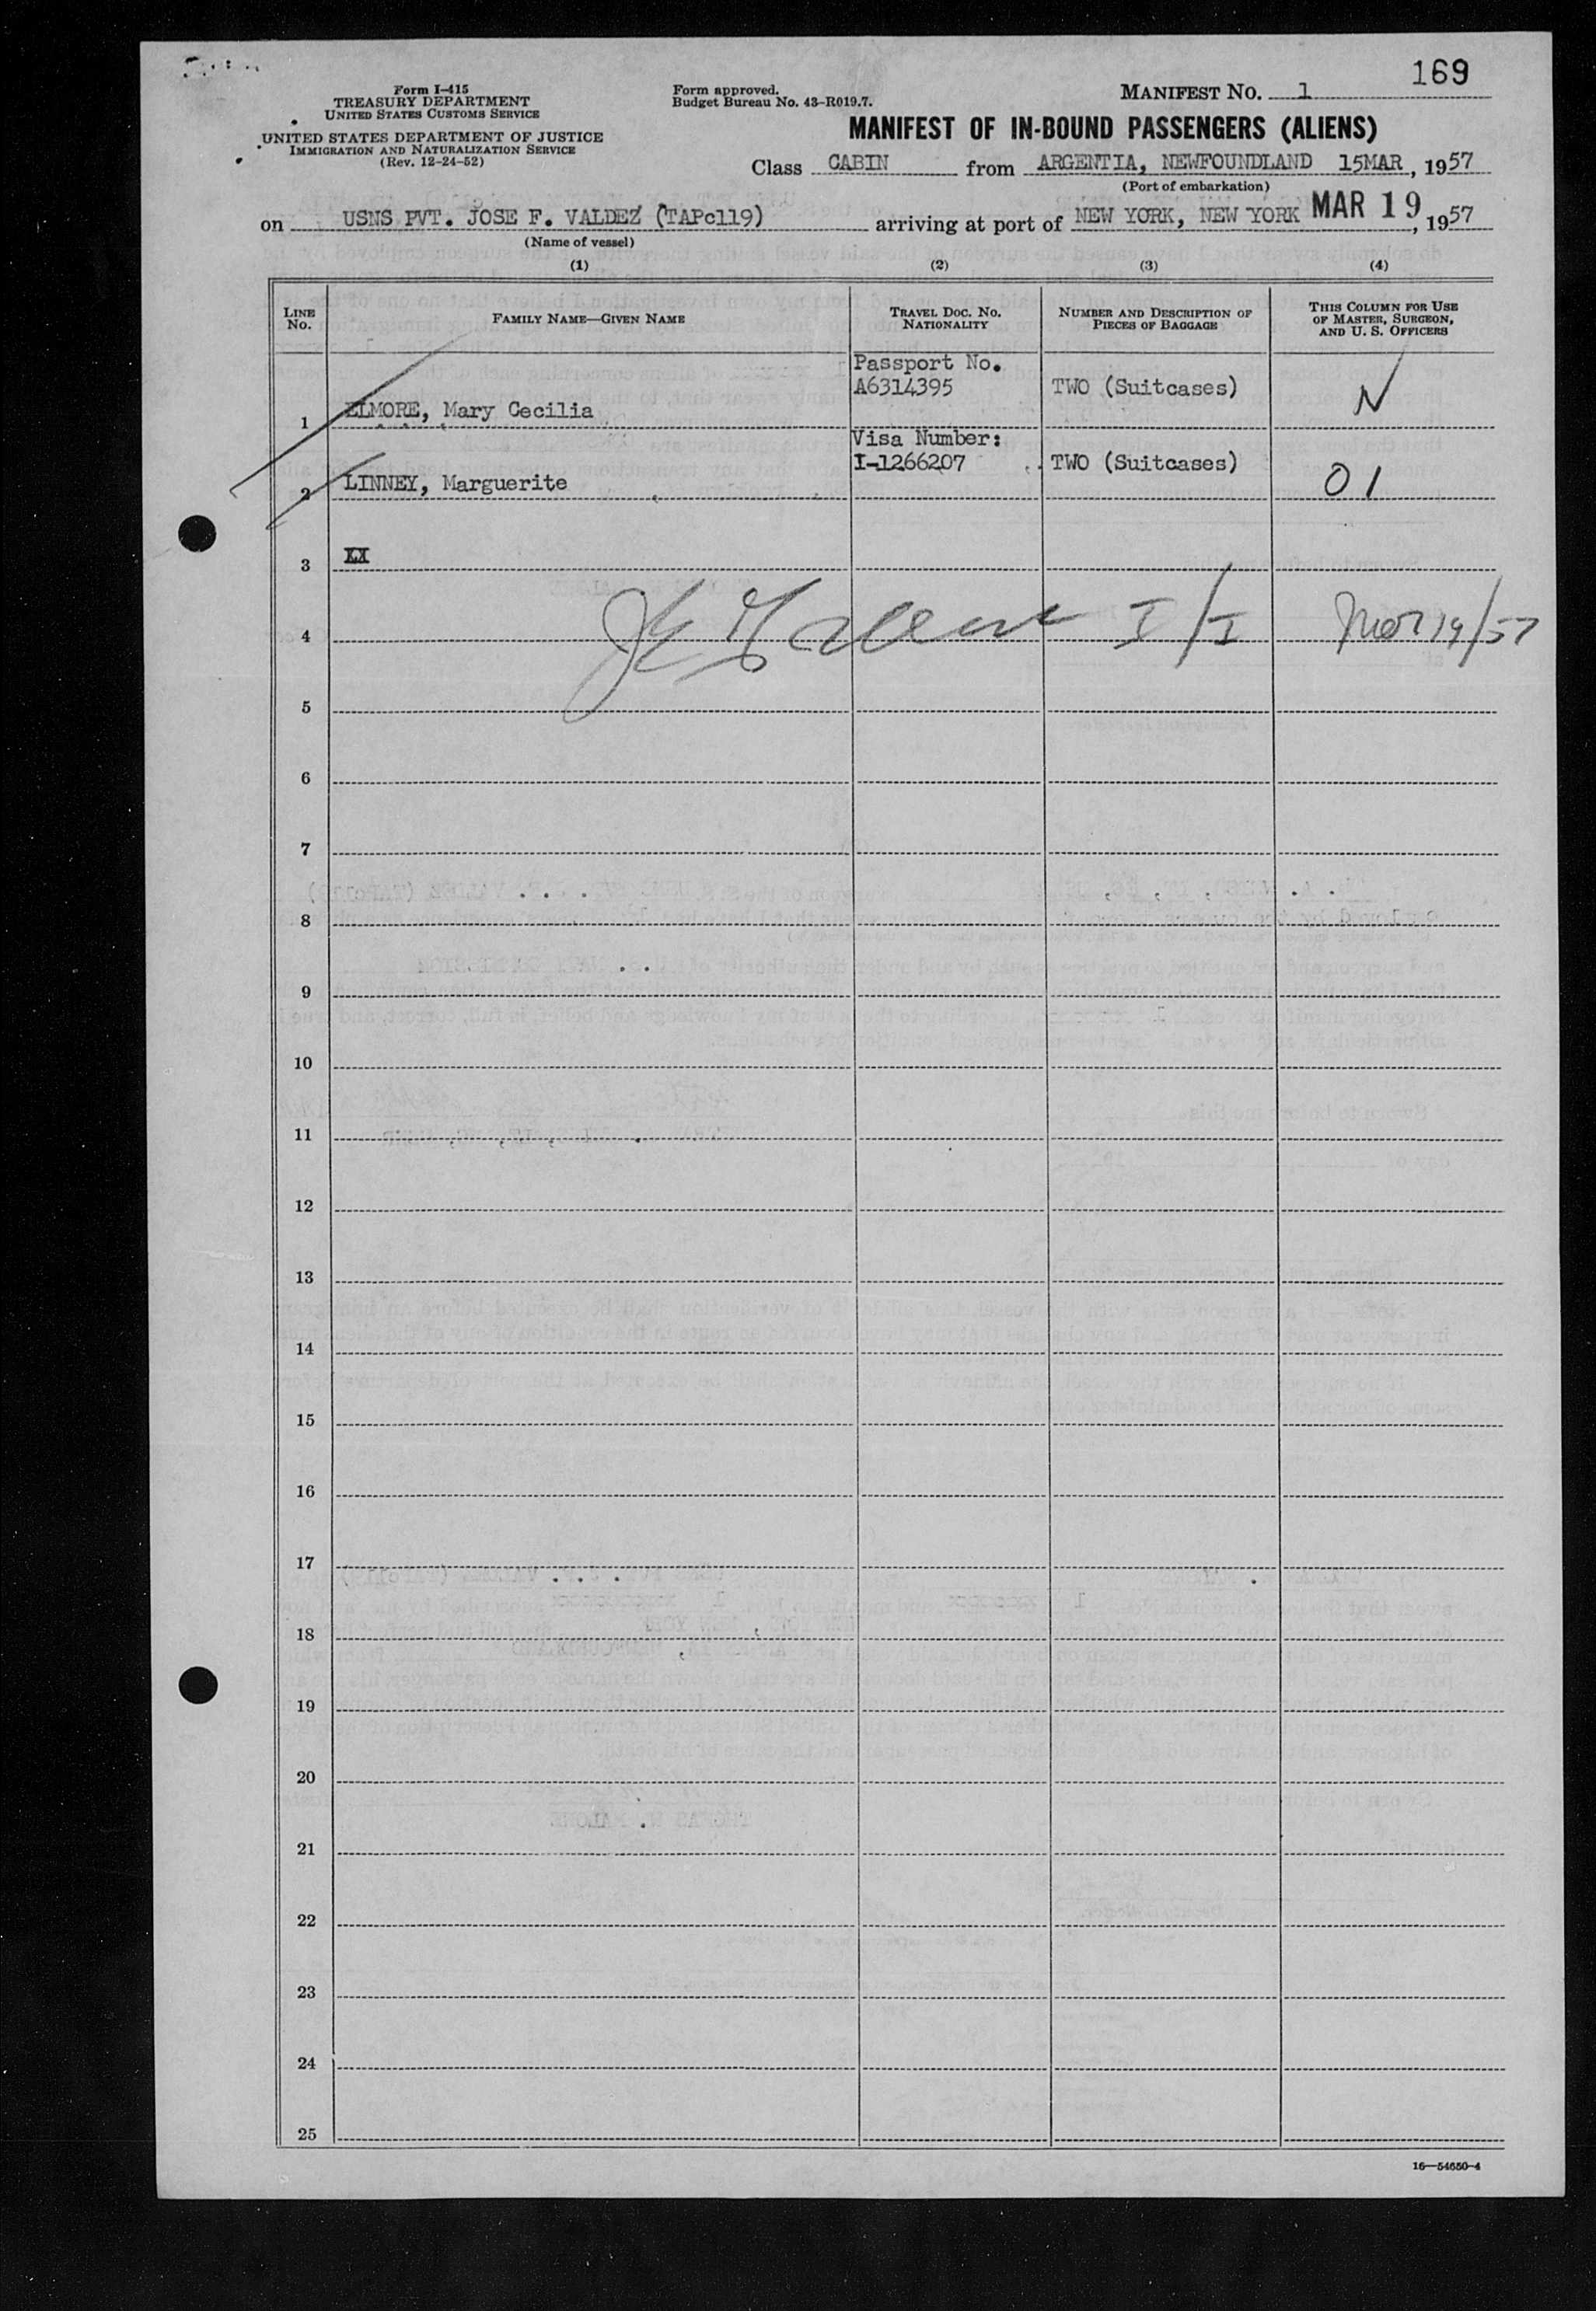 169
Form I-415
TREASURY DEPARTMENT
UNITED STATES CUSTOMS SERVICE
UNITED STATES DEPARTMENT OF JUSTICE
IMMIGRATION AND NATURALIZATION SERVICE
(Rev. 12-24-52)
Form approved.
Budget Bureau No. 43-R019.7.
MANIFEST NO. 1
MANIFEST OF IN-BOUND PASSENGERS (ALIENS)
Class CABIN from ARGENTIA, NEWFOUNDLAND 15MAR, 1957
(Port of embarkation)
on USNS PVT. JOSE F. VALDEZ (TAPc119) arriving at port of NEW YORK, NEW YORK MAR 19, 1957
(Name of vessel)
(1) (2) (3) (4)
LINE NO. FAMILY NAME—GIVEN NAME TRAVEL DOC. NO. NATIONALITY NUMBER AND DESCRIPTION OF PIECES OF BAGGAGE THIS COLUMN FOR USE OF MASTER, SURGEON, AND U. S. OFFICERS
Passport No.
1 ELMORE, Mary Cecilia A6314395 TWO (Suitcases) N
Visa Number:
2 LINNEY, Marguerite I-1266207 TWO (Suitcases) 01
3
4 I/I Mar 19/57
5
6
7
8
9
10
11
12
13
14
15
16
17
18
19
20
21
22
23
24
25
16—54650-4